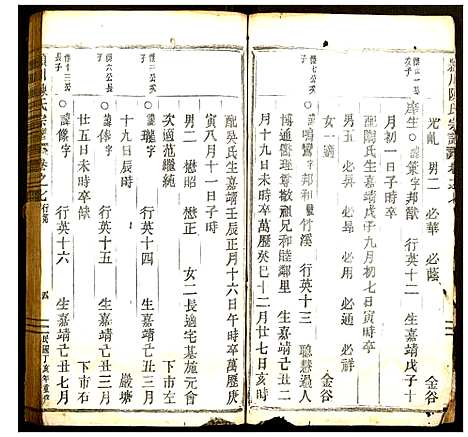 潁川陳氏宗譜
光虬 男二 必華 必蔭 金谷
庠生 諱策 字邦猷 行英十二 生嘉靖戊子十
月初一子時卒
配陶氏生嘉靖戊子九月初七日寅時卒
男五 必昇 必用 必通 必祥
女一適
諱鳴鸞 字邦和 號竹溪 行英十三 聰慧過人
博通管理尊敬祖兄和睦鄰里 生嘉靖己丑二
月十九日子時卒萬曆癸巳十二月廿七日亥時
金谷
配吳氏生嘉靖壬辰正月十六日午時卒萬曆庚
寅八月十一日子時
男二 懋昭 懋正 女二長適宅基施元會
次適范繼統 下市左
諱瑞 字 行英十四 生嘉靖己丑三月
十九日辰時 嚴塘
諱 字 行英十五 生嘉靖己丑三月
廿五日未時卒缺 下市石
諱像 字 行英十六 生嘉靖己丑七月
潁川陳氏宗譜
四
民國丁亥年重修